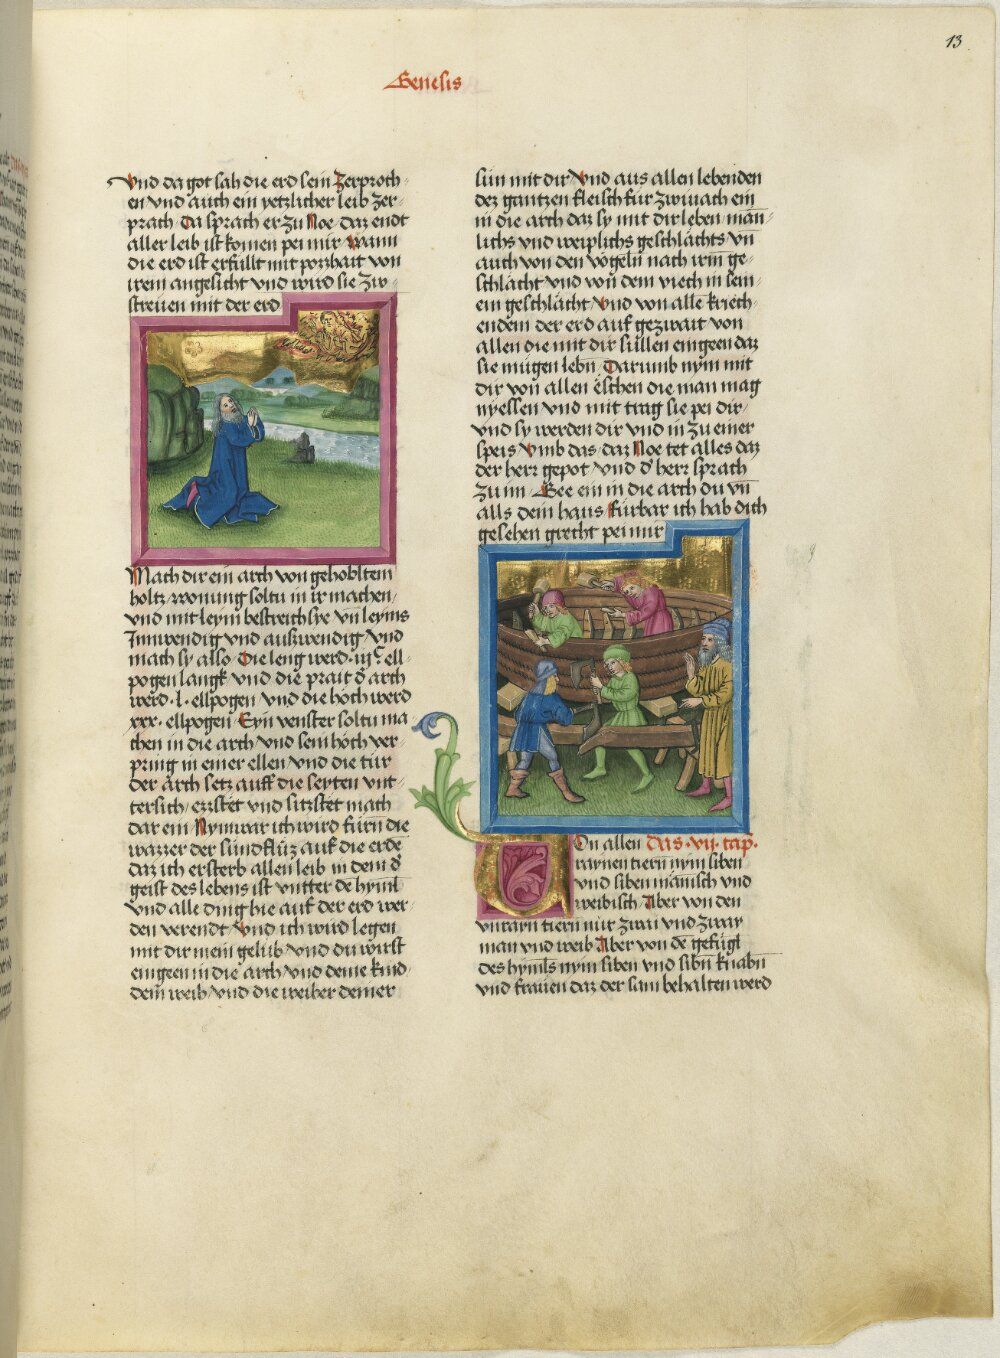 13
Genesis
Vnd da got sah die erd sein Zerproch-
en vnd auch ein yetzlicher leib Zer-
prach Da sprach er zu Noe daz endt
aller leib ist komen pei mir wann
die erd ist erfullt mit pozhait von
irem angesicht vnd wird sie Zw-
streuen mit der erd
Mach dir ein arch von gehobltem
holtz wonung soltu in ir machen
vnd mit leym bestreich sye vn̄ leyms
Innwendig vnd auszwendig vnd
mach sy also Die leng werd iijc ell-
pogen langk vnd die prait d' arch
werd .l. ellpogen vnd die höch werd
xxx. ellpogen Eyn venster soltu ma-
chen in die arch vnd sein höch ver-
pring in einer ellen vnd die tür
der Arch setz auff die seyten vnt-
tersich errstet vnd sitzstet mach
dar ein Nymwar ich wird fürn die
wazzer der sündfluz auf die erde
daz ich ersterb allen leib in dem d'
geist des lebens ist vntter de hyml
vnd alle ding hie auf der erd wer-
den verendt Vnd ich wird legen
mit dir mein gelüb vnd du wirst
eingeen in die arch vnd deine kind
dein weib vnd die weiber deiner
sün mit dir Vnd aus allen lebenden
dez gantzen fleisch für zwiuach ein
in die arch daz sy mit dir leben män-
lichs vnd weiplichs geschlächts vn̄
auch von den vögeln nach irm ge-
schlächt vnd von dem viech in sein-
ein geschlächt Vnd von alle kriech-
endem der erd auf gezwait von
allen die mit dir süllen eingeen daz
sie mügen lebn Darumb nym mit
dir von allen eschen die man mag
nyessen vnd mit trag sie pei dir
vnd sy werden dir vnd in zu einer
speis Vmb das daz Noe tet alles daz
der herr gepot vnd d' herr sprach
zu im Gee ein in die arch du vn̄
alls dein haus fürbar ich hab dich
gesehen grecht pei mir
Von allen Das .vij. cap.
raynen tiern nym siben
vnd siben mänisch vnd
weibisch Aber von den
vnrayn tiern nür zwai vnd zway
man vnd weib Aber von de gefügl
des hymls nym siben vnd sibn knabn̄
vnd frauen daz der sam behalten werd